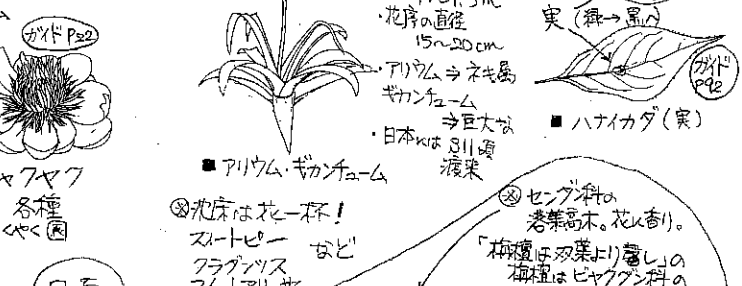 ガイド P22
ャクヤク
各種
・花序の直径
15〜20cm
・アリウム⇒ネギ属
ギガンチューム
⇒巨大な
・日本には S11頃
渡来
■ アリウム・ギガンチューム
実(緑→黒へ)
ガイド
P92
■ ハナイカダ(実)
※沈床は花一杯!
スイートピー
など
※センダン科の
落葉高木。花に香り。
「栴檀は双葉より馨し」の
栴檀はビャクダン科の